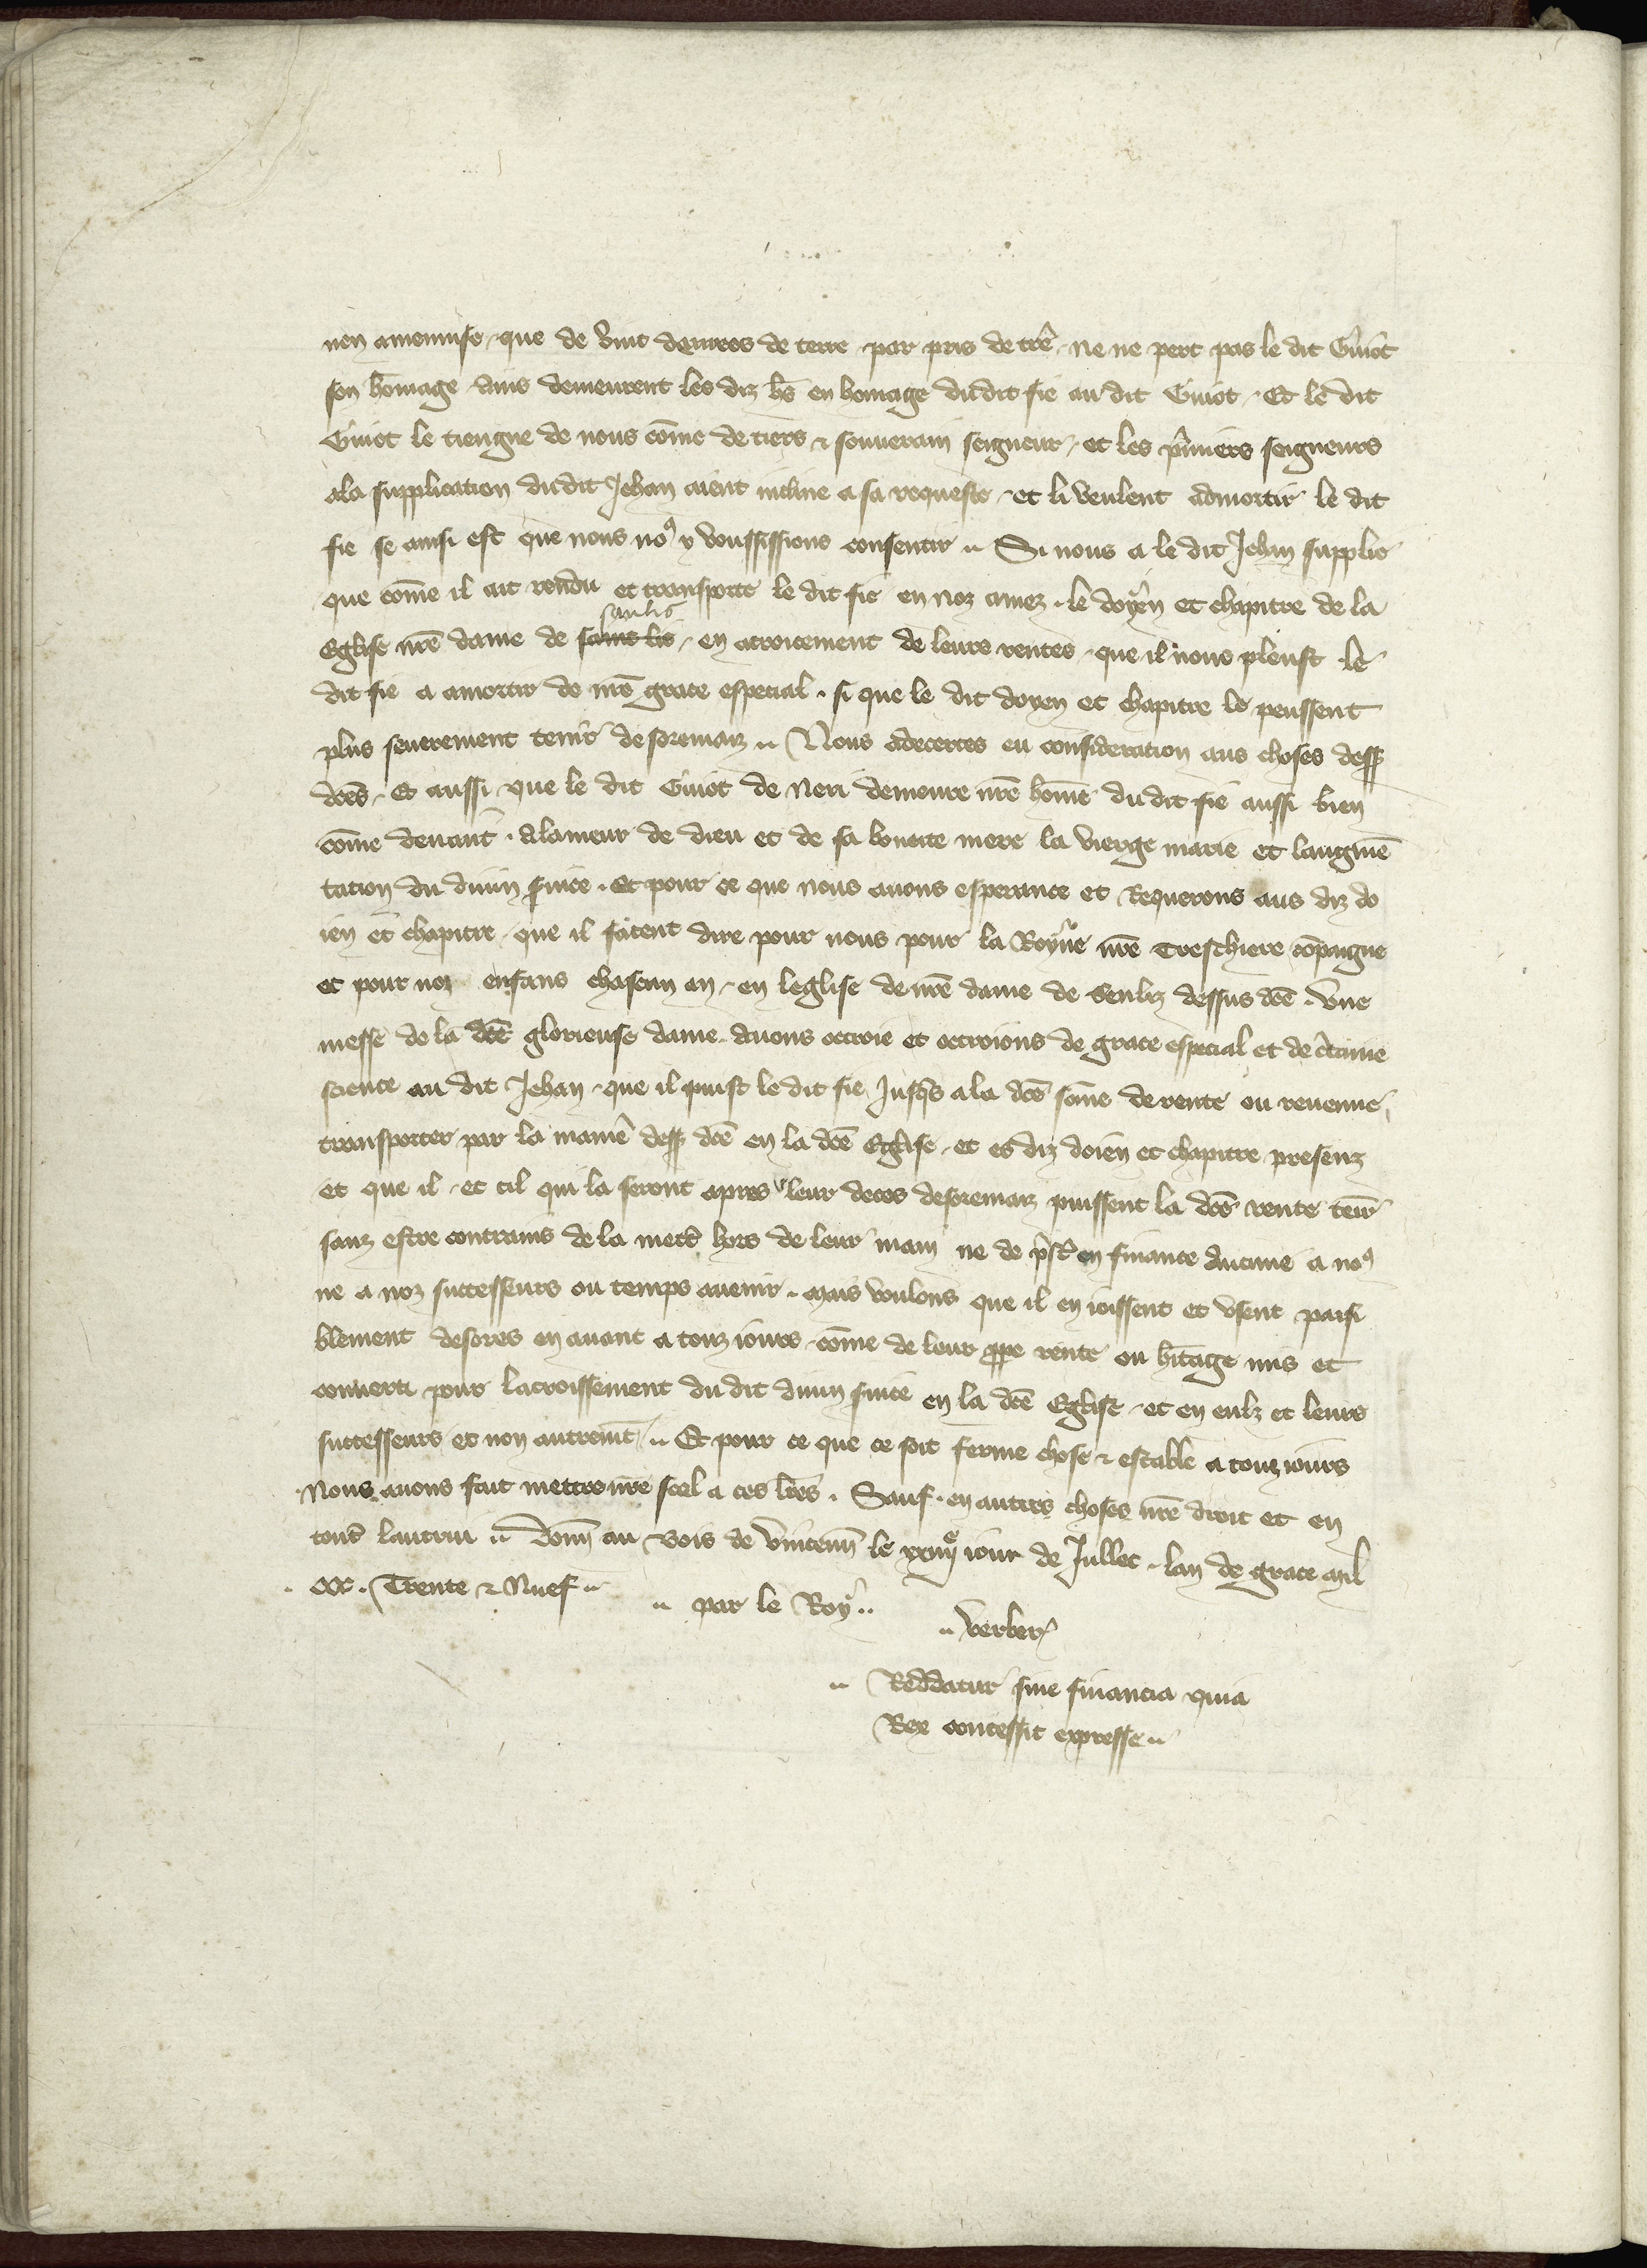 nen amenuise que de vint denrees de terre par pris de tre. Ne ne pert pas le dit Guiot
son homage ains demeurent les diz hs en homage dudit fie au dit Guiot. Et le dit
Guiot le tiengne de nous cōme de tiers & souverain seigneur, et les pimiers seigneurs
ala supplication dudit Jehan aient incline a sa requeste et li veulent admortir le dit
fie se ainsi est que nous no⁹ y voussissions consentir. Si nous a le dit Jehan supplie
que cōme il ait rendu et transporte le dit fie en noz amez le doyen et chapitre de la
Eglise nr̄e dame de saint lis senlis, en acroitement de leurs rentes, que il nous pleust le
dit fie a amortir de nr̄e grace especial. si que le dit doyen et chapitre le peussent
plus seurement tenir desoremaiz. Nous adecertes eu consideration aus choses dess
dc̄es. Et aussi que le dit Guiot de Neri demeure nr̄e home du dit fie aussi bien
cōme devant. Alameur de dieu et de sa benoite mere la vierge marie et laugmē
tation du divin s̄vice. Et pour ce que nous avons esperance et Requerons aus diz do
ien et chapitre que il facent dire pour nous pour la Royne nr̄e Treschiere cōpaigne
et pour noz enfans chascun an, en leglise de nr̄e dame de Senliz dessus dc̄e. Une
messe de la dc̄e glorieuse dame. Avons octroie et octroions de grace especial et de c̄taine
science au dit Jehan, que il puist le dit fie Jusq̄s a la dc̄e sōme de rente ou revenue
transporter par la manie dess dc̄e en la dc̄e Eglise, et es diz doien et chapitre presenz
et que il et cil qui la seront apres leur deces desoremaiz puissent la dc̄e rente tenir
sanz estre contrains de la mettr̄ hors de leur main ne de p̄st̄ en finance Aucune a no⁹
ne a noz successeurs ou temps avenir. Mais voulons que il en ioissent et usent paisi
blement desores en avant a touz iours, cōme de leur ppe rente ou h̄itage mis et
converti pour lacroissement du dit divin s̄vice en la dc̄e Eglise, et en eulz et leurs
successeurs et non autremt̄. Et pour ce que ce soit ferme chose & estable a touz iours
Nous avons fait mettre nr̄e scel a ces lr̄es. Sauf en autres choses nr̄e droit et en
tout̄ lautrui. Donn̄ au Bois de Vincenn̄ le xxiiijᵉ iour de Jullet. lan de grace Mil
CCC. Trente & Nuef
par le Roy
Verber̄
Reddatur sine financia quia
Rex concessit expresse